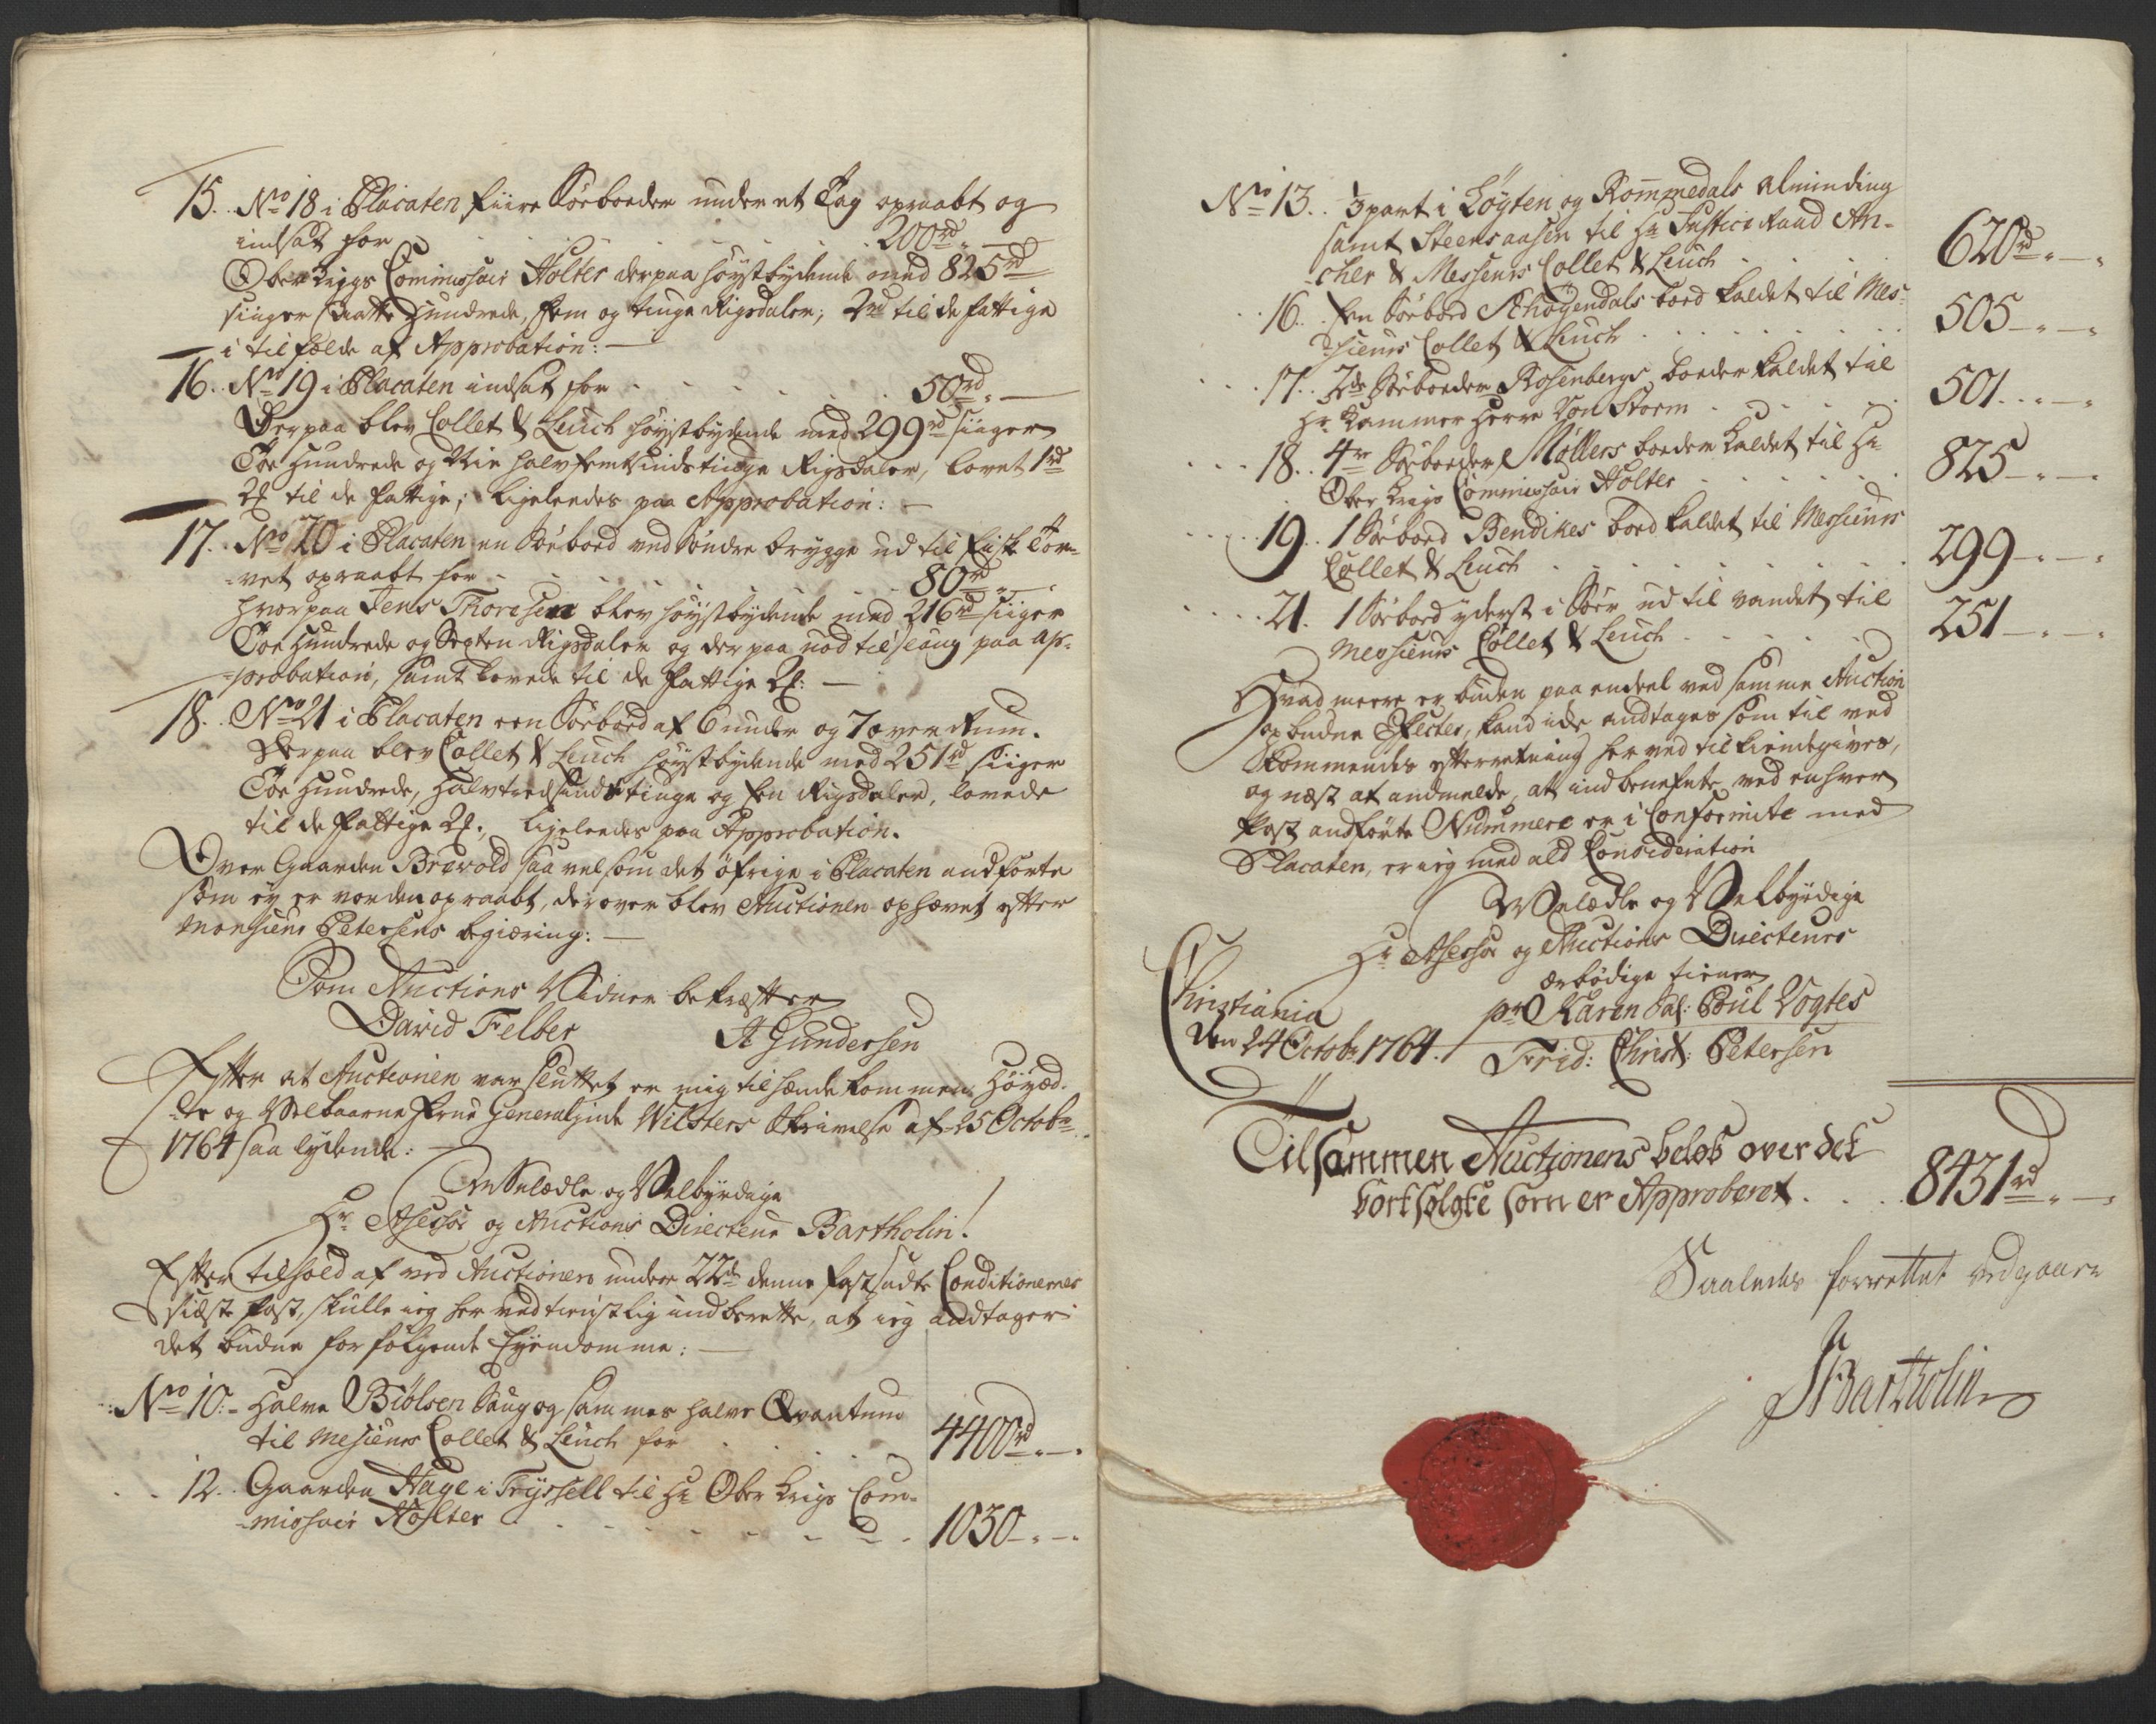 15. No 18 i Placaten fiire Söeboeder under et Tag opraabt og
indsat for . . . . . 200rd „ —
Ober Krigs Commissair Holter derpaa höystbydende med 825rd
siiger Otte Hundrede, fem og tiuge Rigsdaler; 2rd til de fattige
i tilfælde af Approbation: —
16. No 19 i Placaten indsat for . . . . . 50rd „ —
Derpaa blev Collet & Leuch höystbydende med 299rd siiger
Toe Hundrede og Nie halvfemtsindstiuge Rigsdaler, lovet 1rd
2 til de fattige; ligeleedes paa Approbation: —
17. No 20 i Placaten en Söeboed ved Söndre brygge ud til Fiske Tor-
-vet opraabt for . . . . . 80rd „ —
hvorpaa Jens Thoresen blev höystbydende med 216rd siiger
Toe Hundrede og Sexten Rigsdaler og derpaa nod tilslaug paa Ap-
-probation, samt lovede til de fattige 2: —
18. No 21 i Placaten een Söeboed af 6 under og 7 over Rum.
Derpaa blev Collet & Leuch höystbydende med 251rd siiger
Toe Hundrede, Halvtredsindstiuge og Een Rigsdaler, lovede
til de fattige 2, ligeleedes paa Approbation.
Over Gaarden Brevold saavelsom det öfrige i Placaten andförte
som ey er vorden opraabt, derover blev Auctionen ophævet efter
Monsieur Petersens begiæring: —
Som Auctions Vidner bekræfter
David Felber A Gundersen
Efter at Auctionen var sluttet er mig tilhænde kommen Höyæd-
-le og Velbaarne Frue Generalinde Wilsters Skrivelse af 25 Octobr
1764 saa lydende: —
Velædle og Velbyrdige
Hr Assessor og Auctions Directeur Bartholin!
Efter tilhold af ved Auctionen under 22de denne fastsadte Conditionernes
siste Post, skulle ieg herved tienstlig indberette, at ieg andtager
det budne for fölgende Eyendomme: —
No 10. Halve Biölsen Saug og sammes halve Qvantum
til Messieurs Collet & Leuch for . . . 4400rd „ — „
12. Gaarden Hage i Tryssell til Hr Ober Krigs Com-
-missair Holter . . . . . 1030 — „ — „
No 13. 1/3 part i Löyten og Rommedals Alminding
samt Steensaasen til Hr Justice Raad An-
-cher & Messieurs Collet & Leuch . . . 620rd „ — „
16. Een Söeboed Schöyendals boed kaldet til Mes-
-sieurs Collet & Leuch . . . . . 505 — „ — „
17. 2de Söeboeder Rosenbergs boeder kaldet til
Hr Kammer Herre Von Storm . . . . . 501 . . — „
18. 4re Söeboeder Möllers boeder kaldet til Hr
Ober Krigs Commissair Holter . . . . . 825 — „ —
19. 1 Söeboed Bendikes boed kaldet til Messieurs
Collet & Leuch . . . . . 299 — „ — „
21. 1 Söeboed yderst i Söen ud til vandet til
Messieurs Collet & Leuch . . . . . 251 — „ — „
Hvad meere er buden paa endeel ved samme Auction
opbudne Effecter, kand icke andtages som til ved
kommendes efterretning herved tilkiendegives,
og næst at andmelde, at indbenefnte ved enhver
Post andförte Nummere er i Conformite med
Placaten, er ieg med ald Consideration
Velædle og Velbyrdige
Hr Assessor og Auctions Directeurs
ærbödige tiener
Christiania pro Karen Sal: Poul Vogtes
den 24 Octobr 1764. Frid: Christ: Petersen
Tilsammen Auctionens belöb over det
bortsolgte som er Approberet . . . 8431rd „ — „
Saaledes forrettet vedgaar
Bartholin